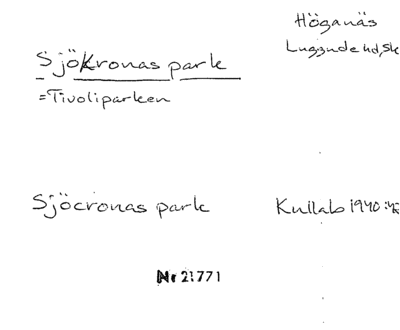 Höganäs
Sjökronas park
Luggude hd, Sk
=Tivoliparken
Sjöcronas park
Kullab 1940:42
Nr 21771